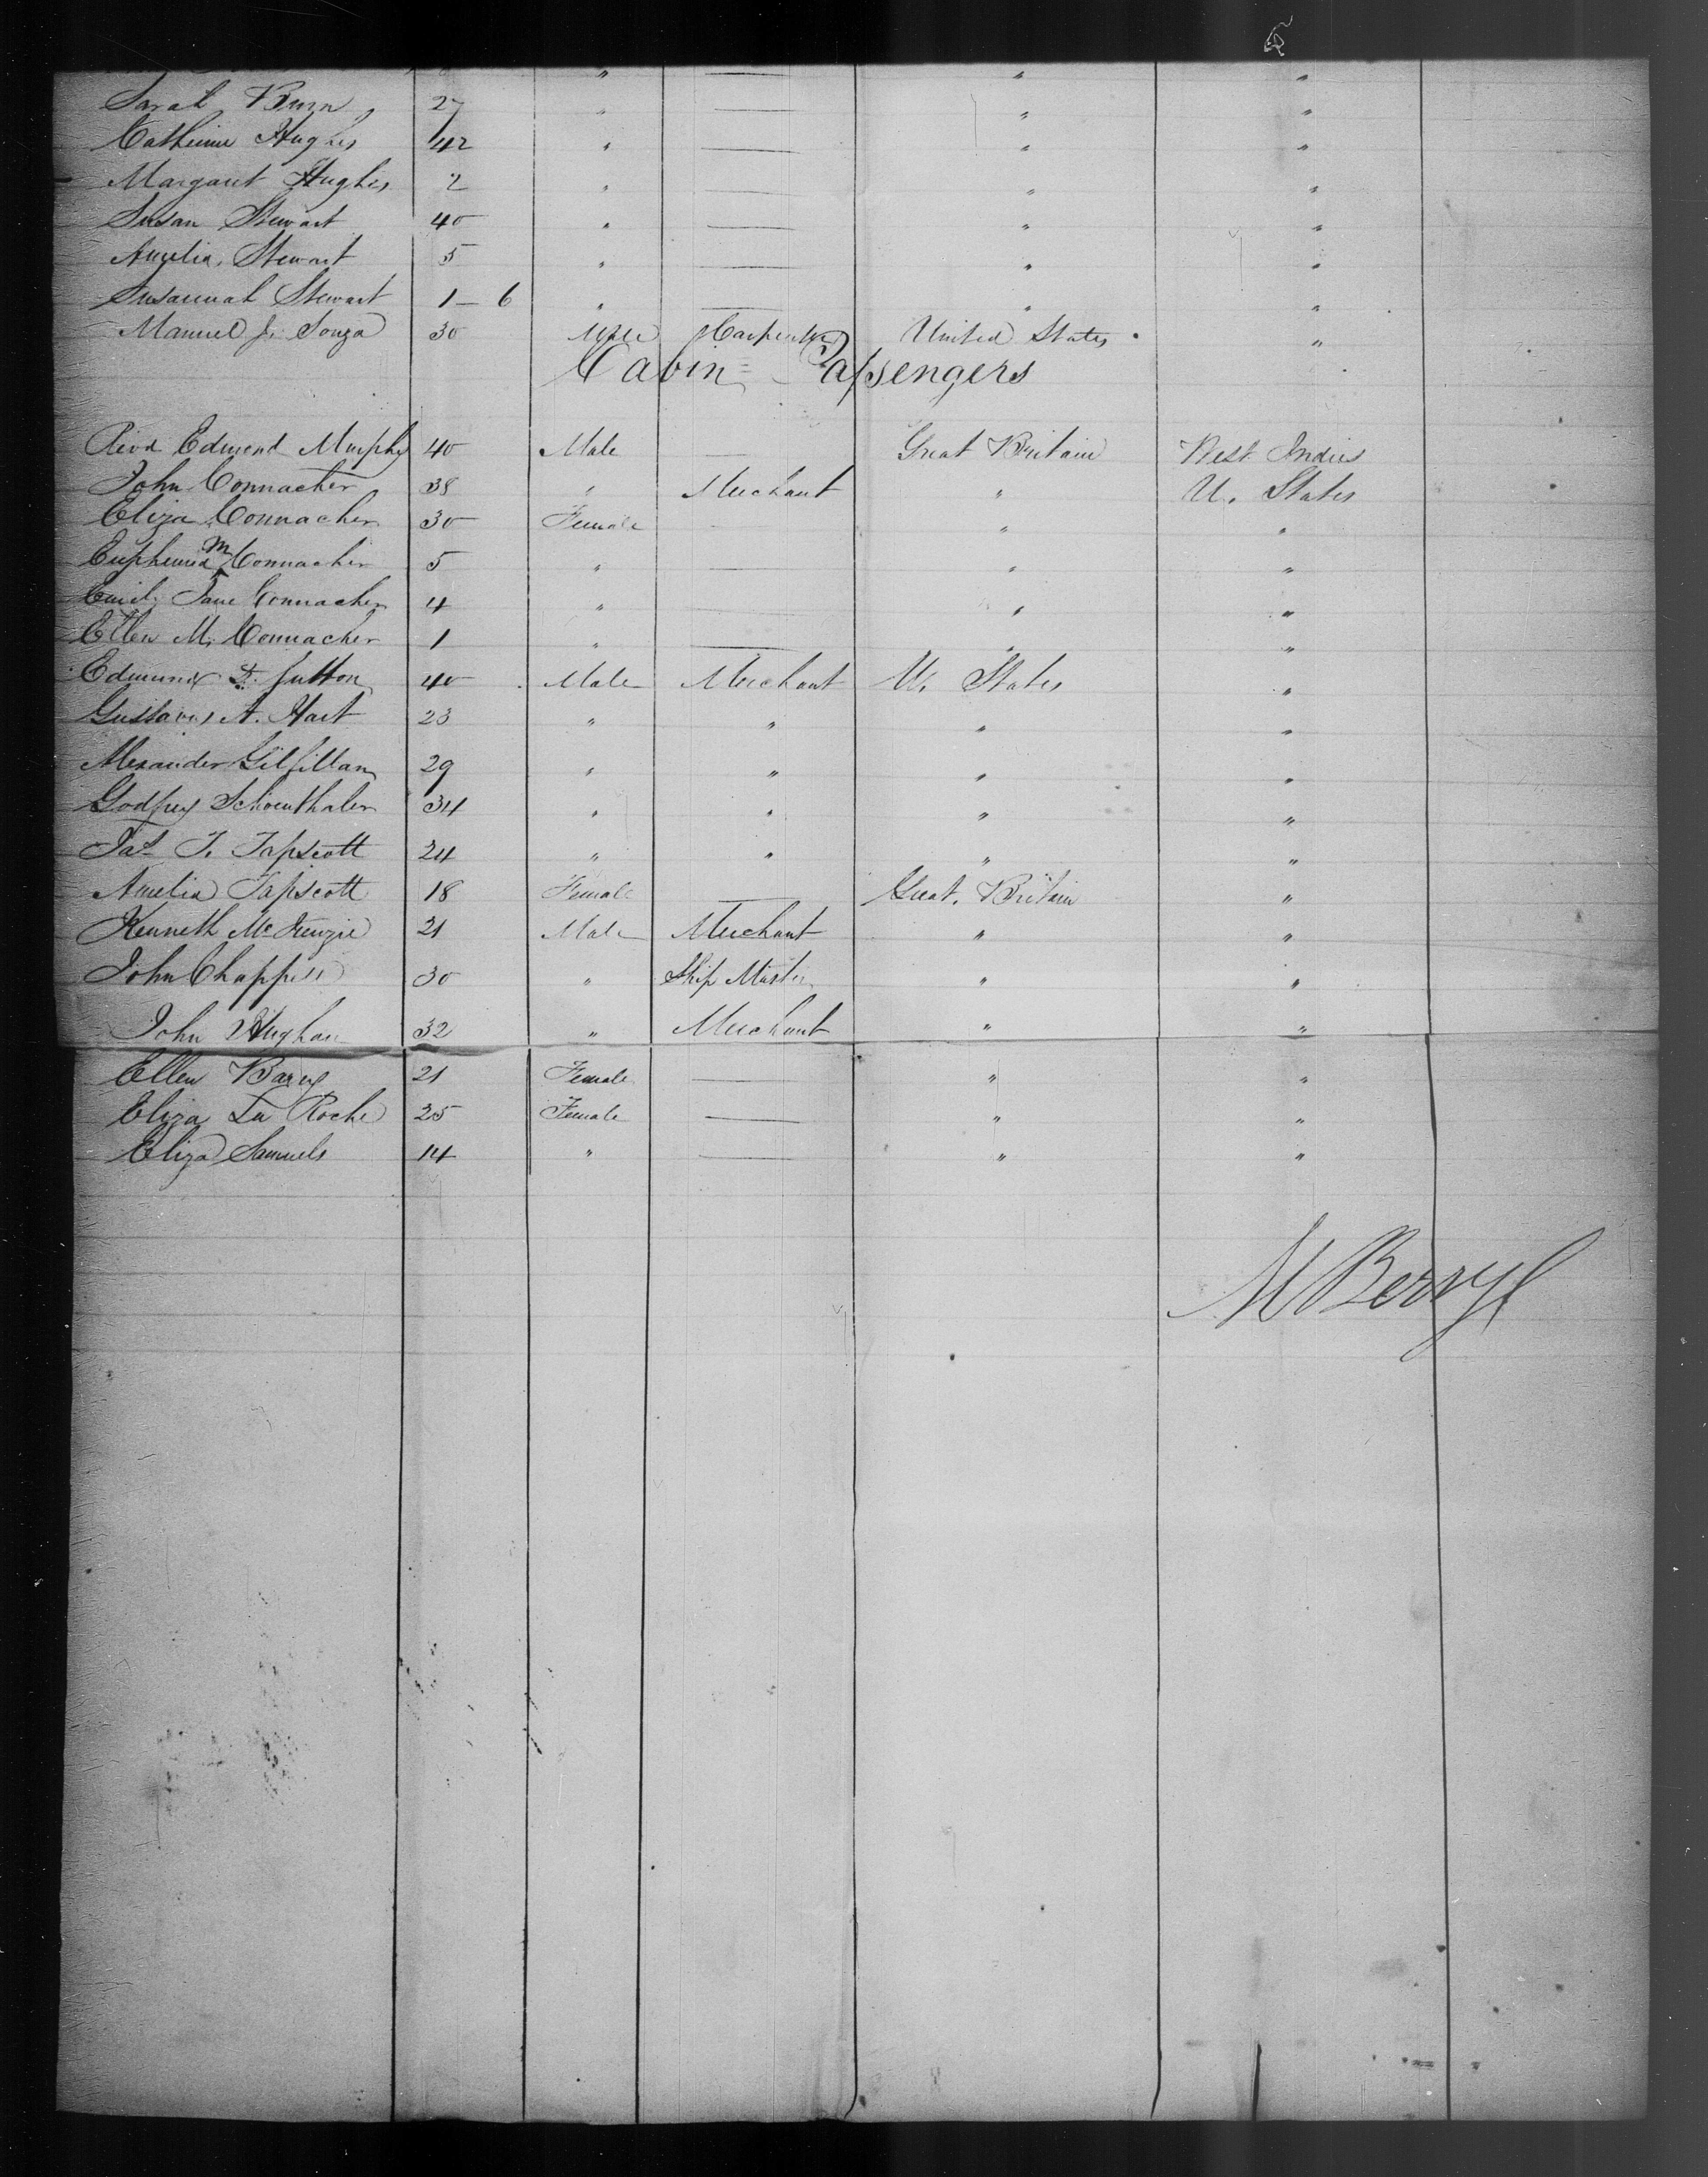 " — " "
Sarah Burn 27 " — " "
Catherine Hughes 42 " — " "
Margaret Hughes 2 " — " "
Susan Stewart 40 " — " "
Amelia Stewart 5 " — " "
Susannah Stewart 1 – 6 " — " "
Manuel J. Souza 30 Male Carpenter United States "
Cabin = Passengers
Revd Edmond Murphy 40 Male — Great Britain West Indies
John Connacher 38 " Merchant " U. States
Eliza Connacher 30 Female — " "
Euphemia M Connacher 5 " — " "
Emily Jane Connacher 4 " — " "
Ellen M. Connacher 1 " — " "
Edmund Sutton 40 Male Merchant U. States "
Gustavus A. Hart 23 " " " "
Alexander Gilfillan 29 " " " "
Godfrey Schoenthaler 34 " " " "
Jas T. Tapscott 24 " " " "
Amelia Tapscott 18 Female — Great Britain "
Kenneth McKenzie 21 Male Merchant " "
John Chappell 30 " Ship Master " "
John Hughan 32 " Merchant " "
Ellen 21 Female — " "
Eliza La Roche 25 Female — " "
Eliza Samuels 14 " — " "
M Berry